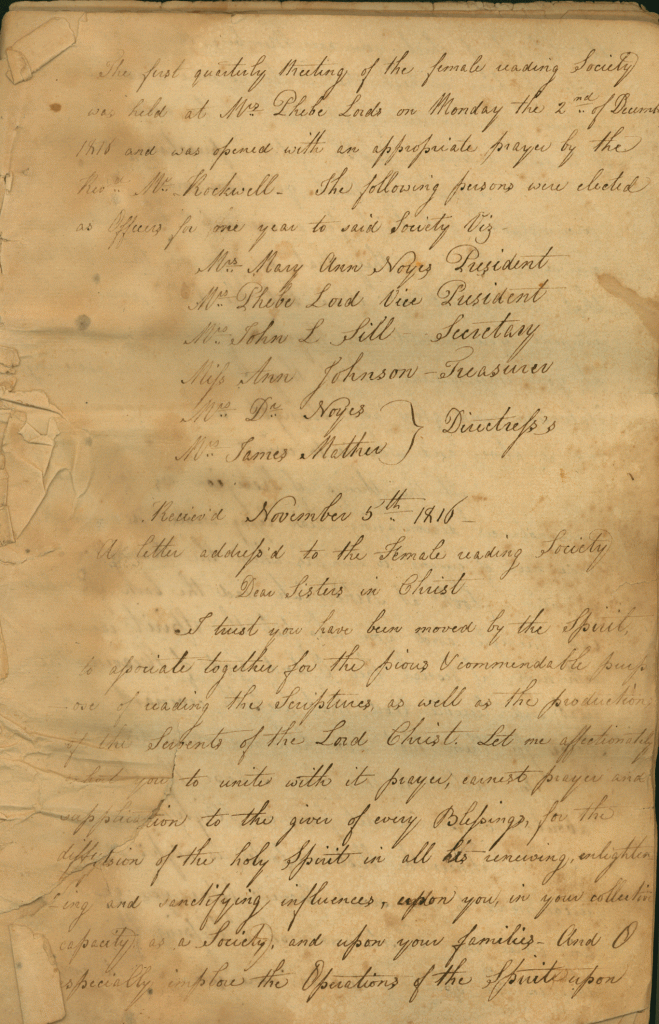 The first quarterly Meeting of the female reading Society
was held at Mrs. Phebe Lords on Monday the 2nd of Decemb
1816 and was opened with an appropriate prayer by the
Revd. Mr. Rockwell - The following persons were elected
as Officers for one year to said Society Viz -
Mrs. Mary Ann Noyes President
Mrs. Phebe Lord Vice President
Mrs. John L. Sill - Secretary
Miss Ann Johnson - Treasurer
Mrs. Dr. Noyes
Mrs. James Mather } Directress's
Reciev'd November 5th 1816 -
A letter address'd to the Female reading Society
Dear Sisters in Christ
I trust you have been moved by the Spirit,
to associate together for the pious & commendable purp
ose of reading the Scriptures, as well as the productions
of the Servents of the Lord Christ. Let me affectionately
you to unite with it prayer, earnest prayer and
supplication to the giver of every Blessings, for the
diffusion of the holy Spirit in all his renewing, enlighten
ing and sanctifying influences, upon you, in your collective
capacity, as a Society, and upon your families - And O
especially implore the Operations of the Spirit upon